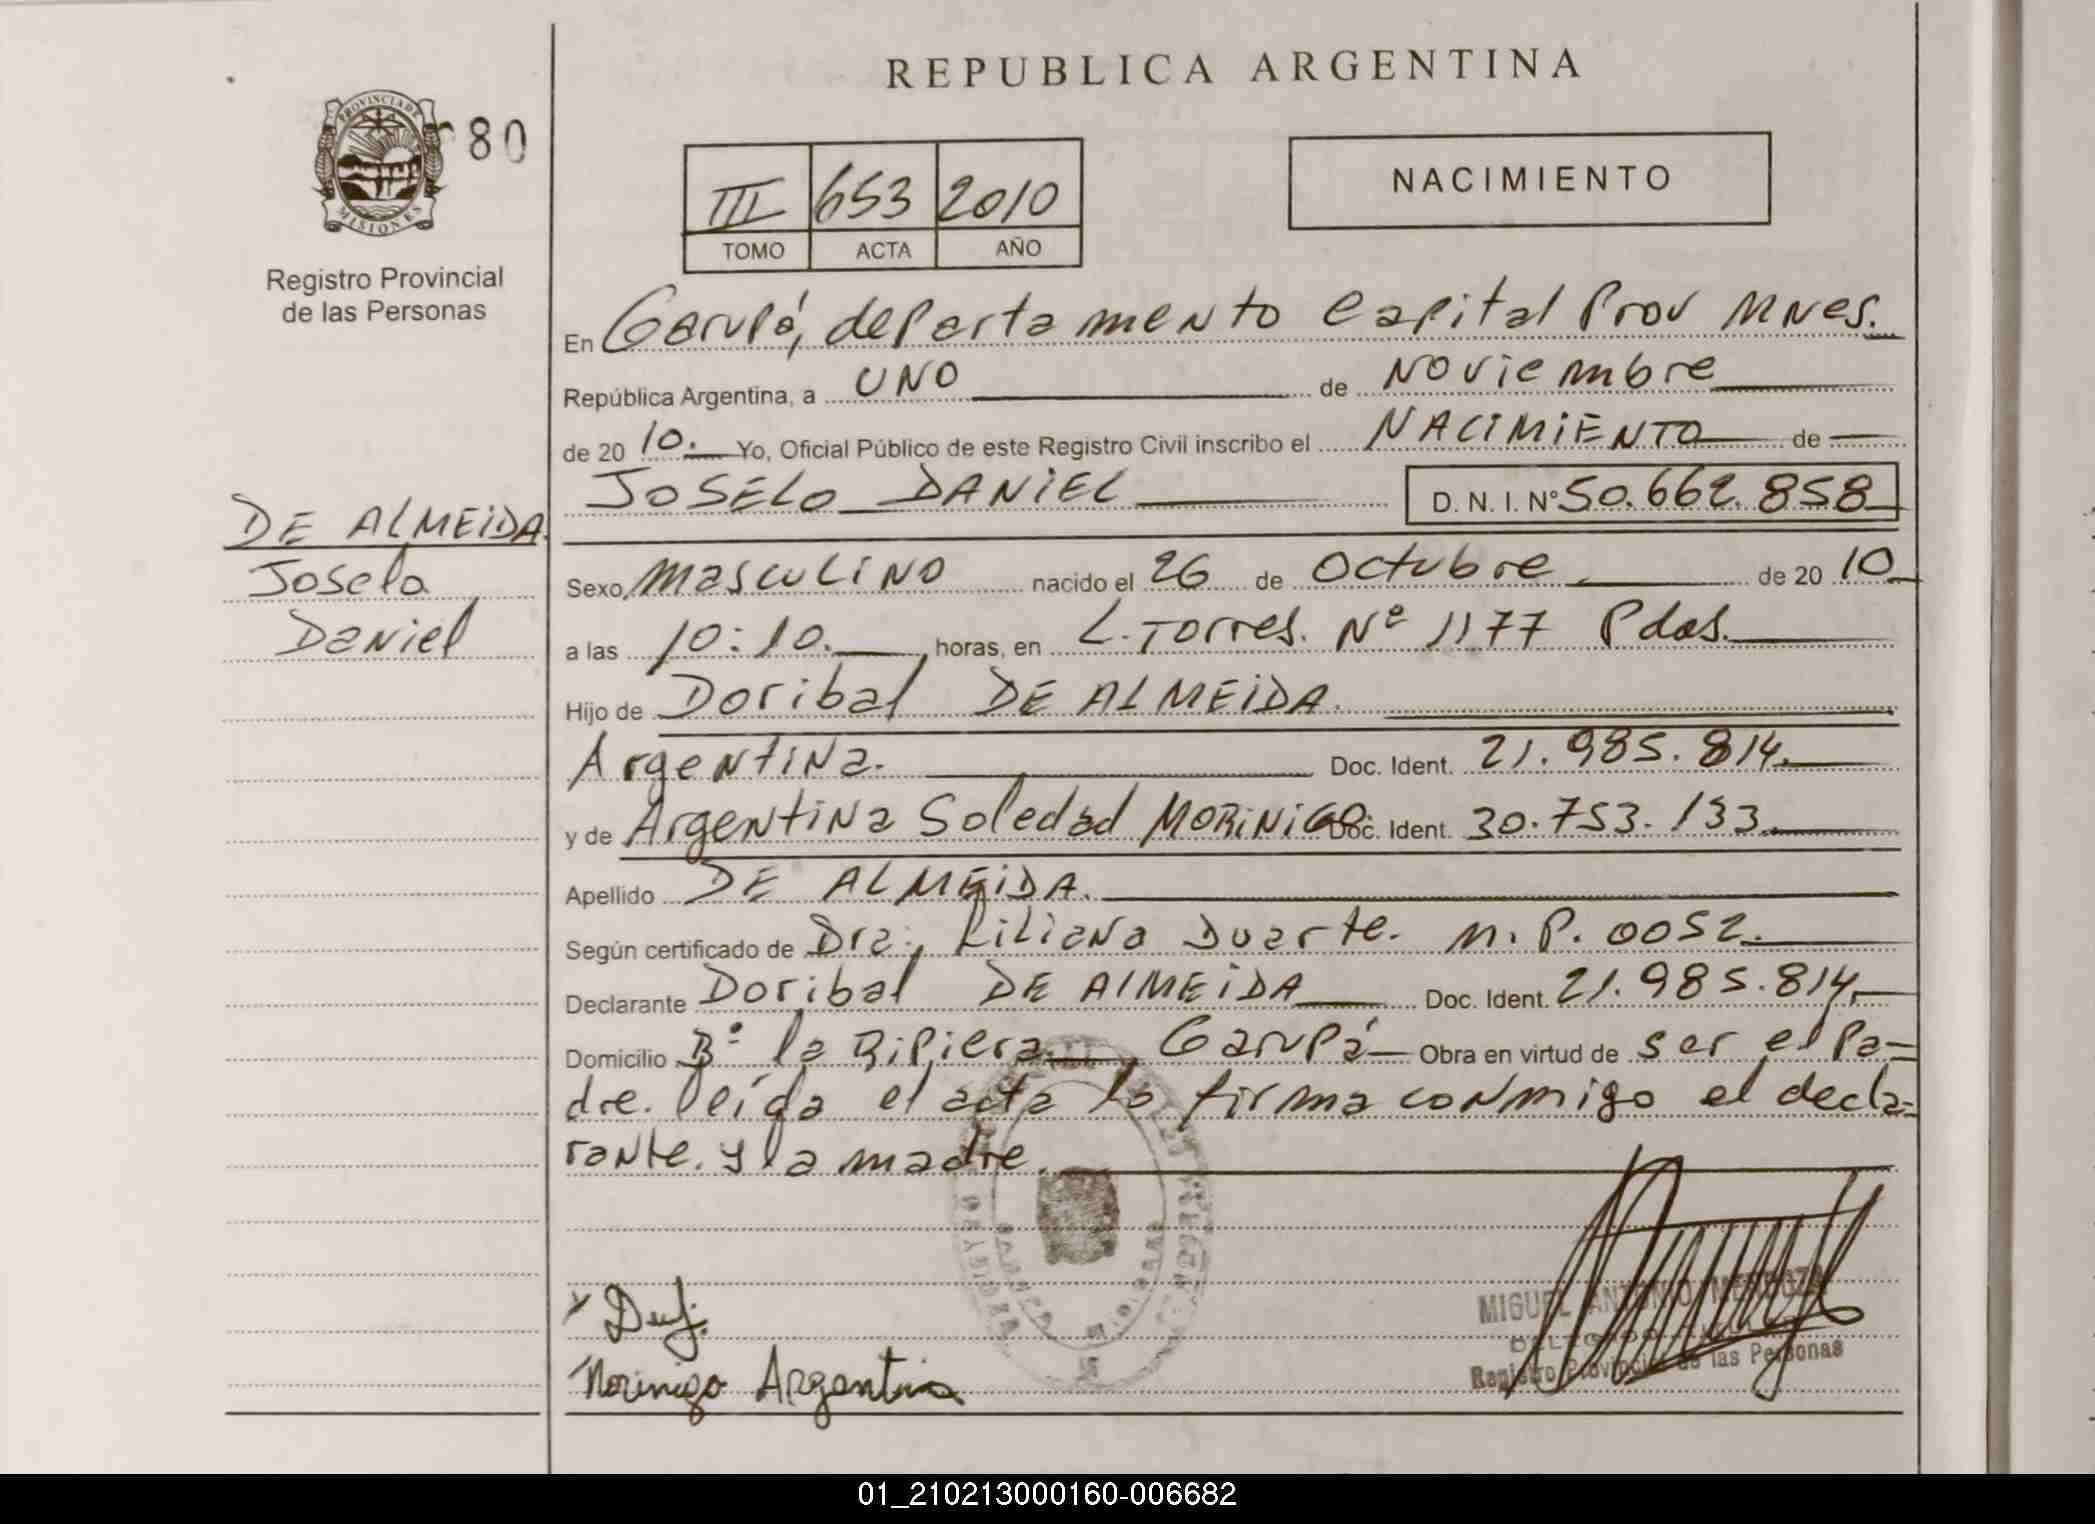 REPUBLICA ARGENTINA
PROVINCIA DE
MISIONES
80
Registro Provincial
de las Personas
III 653 2010
TOMO ACTA AÑO
NACIMIENTO
En Garupá, departamento Capital Prov Mnes.
República Argentina, a UNO de Noviembre
de 20 10. Yo, Oficial Público de este Registro Civil inscribo el NACIMIENTO de
JOSELO DANIEL D. N. I. Nº 50.662.858
DE ALMEIDA
Joselo
Daniel
Sexo masculino nacido el 26 de Octubre de 20 10
a las 10:10. horas, en L. Torres. Nº 1177 Pdas.
Hijo de Doribal DE ALMEIDA.
Argentina. Doc. Ident. 21.985.814.
y de Argentina Soledad MORINIGO Doc. Ident. 30.753.133.
Apellido DE ALMEIDA.
Según certificado de Dra. Liliana Duarte. M.P. 0052.
Declarante Doribal DE AlMEIDA Doc. Ident. 21.985.814
Domicilio Bº la Ripiera Garupá Obra en virtud de ser el Pa=
dre. leída el acta la firma conmigo el decla=
rante. y la madre.
Morinigo Argentina
MIGUEL ANTONIO MENDOZA
Registro Provincial de las Personas
01_210213000160-006682